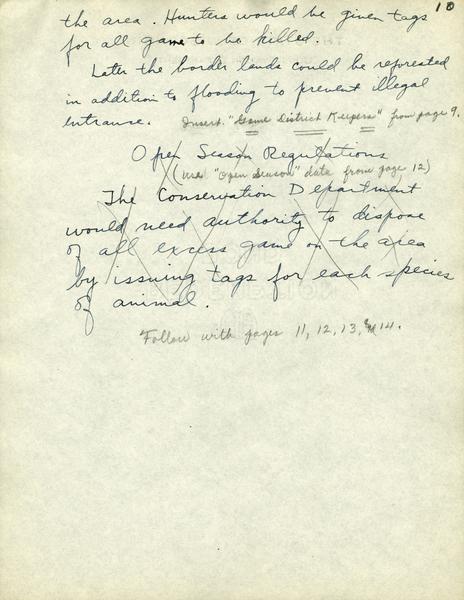 10
the area. Hunters would be given tags
for all game to be killed.
Later the border lands could be reforested
in addition to flooding to prevent illegal
entranse. Insert "Game District Keepers" from page 9.
Open Season Regulations
(use "open season" data from page 12)
The Conservation Department
would need authority to dispose
of all excess game on the area
by issuing tags for each species
of animal.
Follow with pages 11, 12, 13, & 14.